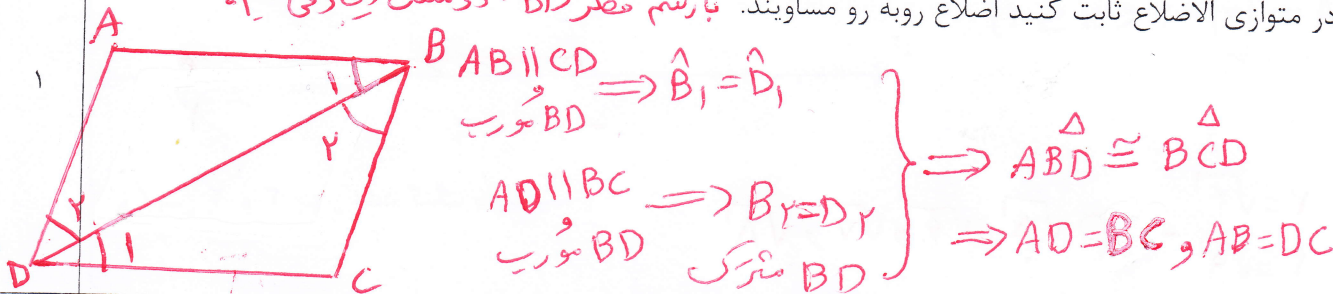 در متوازی الاضلاع ثابت کنید اضلاع روبه رو مساویند. با رسم قطر BD
۱
A
B
۱
۲
۲
۱
D
C
AB||CD
و BD مورب
=> B̂۱ = D̂۱
AD||BC
و BD مورب
=> B۲=D۲
BD مشترک
=> ABD ≅ BCD
=> AD=BC و AB=DC